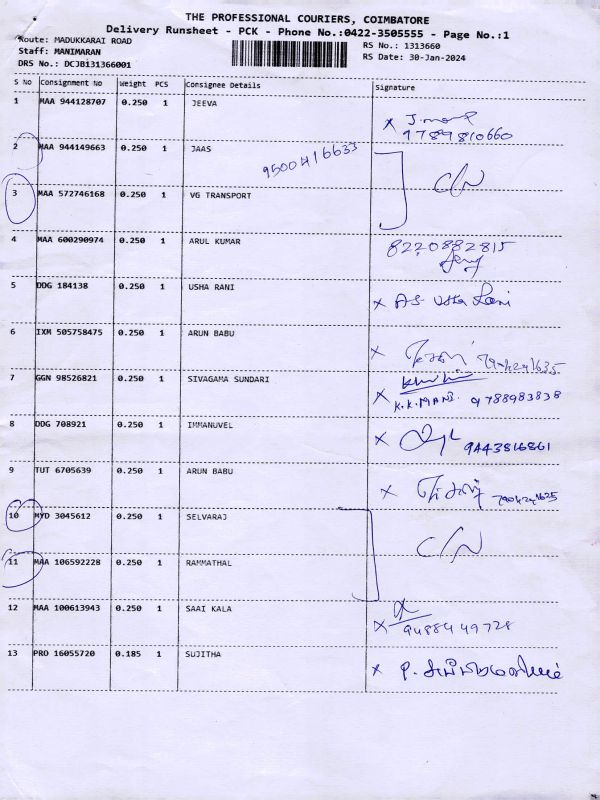 THE PROFESSIONAL COURIERS, COIMBATORE
Delivery Runsheet - PCK - Phone No.:0422-3505555 - Page No.:1
Route: MADUKKARAI ROAD
Staff: MANIMARAN
DRS No.: DCJB131366001
RS No.: 1313660
RS Date: 30-Jan-2024
S No Consignment No Weight PCS Consignee Details Signature
1 MAA 944128707 0.250 1 JEEVA
9789810660
2 MAA 944149663 0.250 1 JAAS 9500416633
C/N
3 MAA 572746168 0.250 1 VG TRANSPORT
4 MAA 600290974 0.250 1 ARUL KUMAR 8220882815
5 DDG 184138 0.250 1 USHA RANI x A.S Usha Rani
6 IXM 505758475 0.250 1 ARUN BABU x
7 GGN 98526821 0.250 1 SIVAGAMA SUNDARI x
K.K.MANI. 9788983838
8 DDG 708921 0.250 1 IMMANUVEL x 9443816861
9 TUT 6705639 0.250 1 ARUN BABU x
10 MYD 3045612 0.250 1 SELVARAJ
C/N
11 MAA 106592228 0.250 1 RAMMATHAL
12 MAA 100613943 0.250 1 SAAI KALA x
9488449728
13 PRO 16055720 0.185 1 SUJITHA x P.